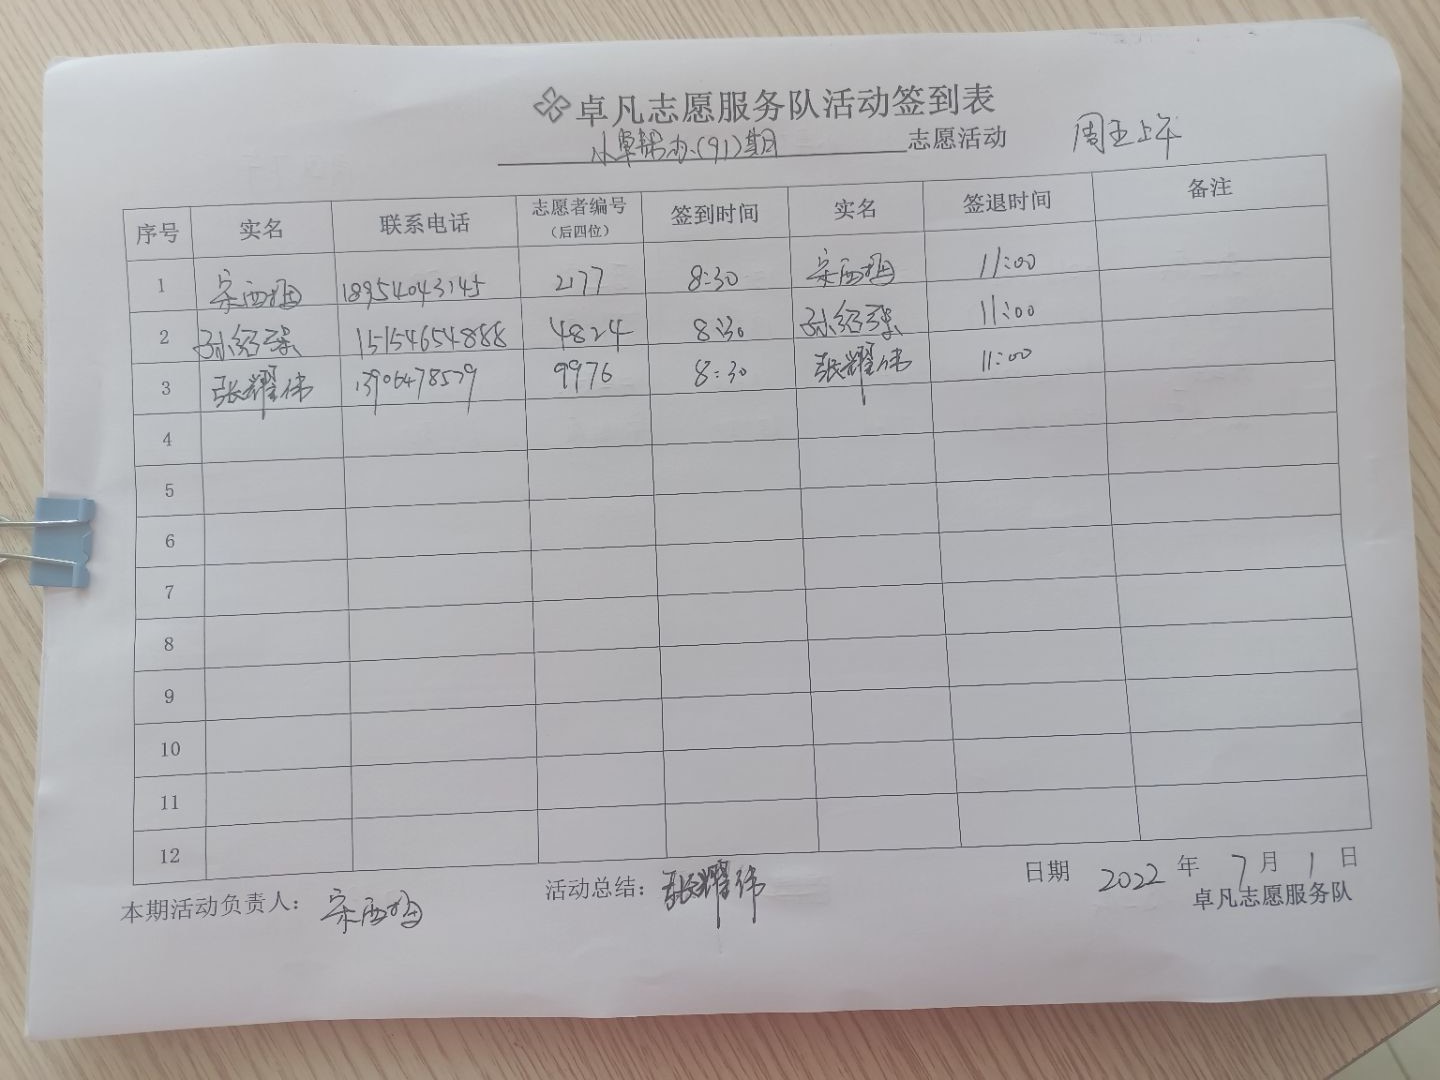 卓凡志愿服务队活动签到表
小卓帮办(91)期 志愿活动 周五上午
序号 实名 联系电话 志愿者编号（后四位） 签到时间 实名 签退时间 备注
1 宋西梅 18954043145 2177 8:30 宋西梅 11:00
2 孙绍 15154654888 4824 8:30 孙绍 11:00
3 张耀伟 13906478579 9976 8:30 张耀伟 11:00
4
5
6
7
8
9
10
11
12
本期活动负责人： 宋西梅 活动总结： 张耀伟 日期 2022 年 7 月 1 日
卓凡志愿服务队